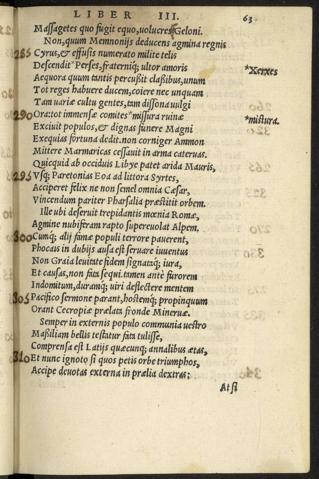 LIBER III. 63
Massagetes quo fugit equo, uolucres Geloni.
Non, quum Memnonijs deducens agmina regnis
285 Cyrus, & effusis numerato milite telis
Descendit *Perses, fraterniq; ultor amoris *Xerxes
Aequora quum tantis percußit claßibus, unum
Tot reges habuere ducem, coiere nec unquam
Tam uariæ cultu gentes, tam dissona uulgi
290 Ora: tot immensæ comites *missura ruinæ *mistura.
Exciuit populos, & dignas funere Magni
Exequias fortuna dedit. non corniger Ammon
Mittere Marmaricas cessauit in arma cateruas.
Quicquid ab occiduis Libye patet arida Mauris,
295 Vsq; Parætonias Eoa ad littora Syrtes,
Acciperet felix ne non semel omnia Cæsar,
Vincendum pariter Pharsalia præstitit orbem.
Ille ubi deseruit trepidantis mœnia Romæ,
Agmine nubiferam rapto superuolat Alpem.
300 Cumq; alij famæ populi terrore pauerent,
Phocais in dubijs ausa est seruare iuuentus
Non Graia leuitate fidem signataq; iura,
Et causas, non fata sequi. tamen antè furorem
Indomitum, duramq; uiri deflectere mentem
305 Pacifico sermone parant, hostemq; propinquum
Orant Cecropiæ prælata fronde Mineruæ.
Semper in externis populo communia uestro
Maßiliam bellis testatur fata tulisse,
Comprensa est Latijs quæcunq; annalibus ætas,
310 Et nunc ignoto si quos petis orbe triumphos,
Accipe deuotas externa in prælia dextras:
At si